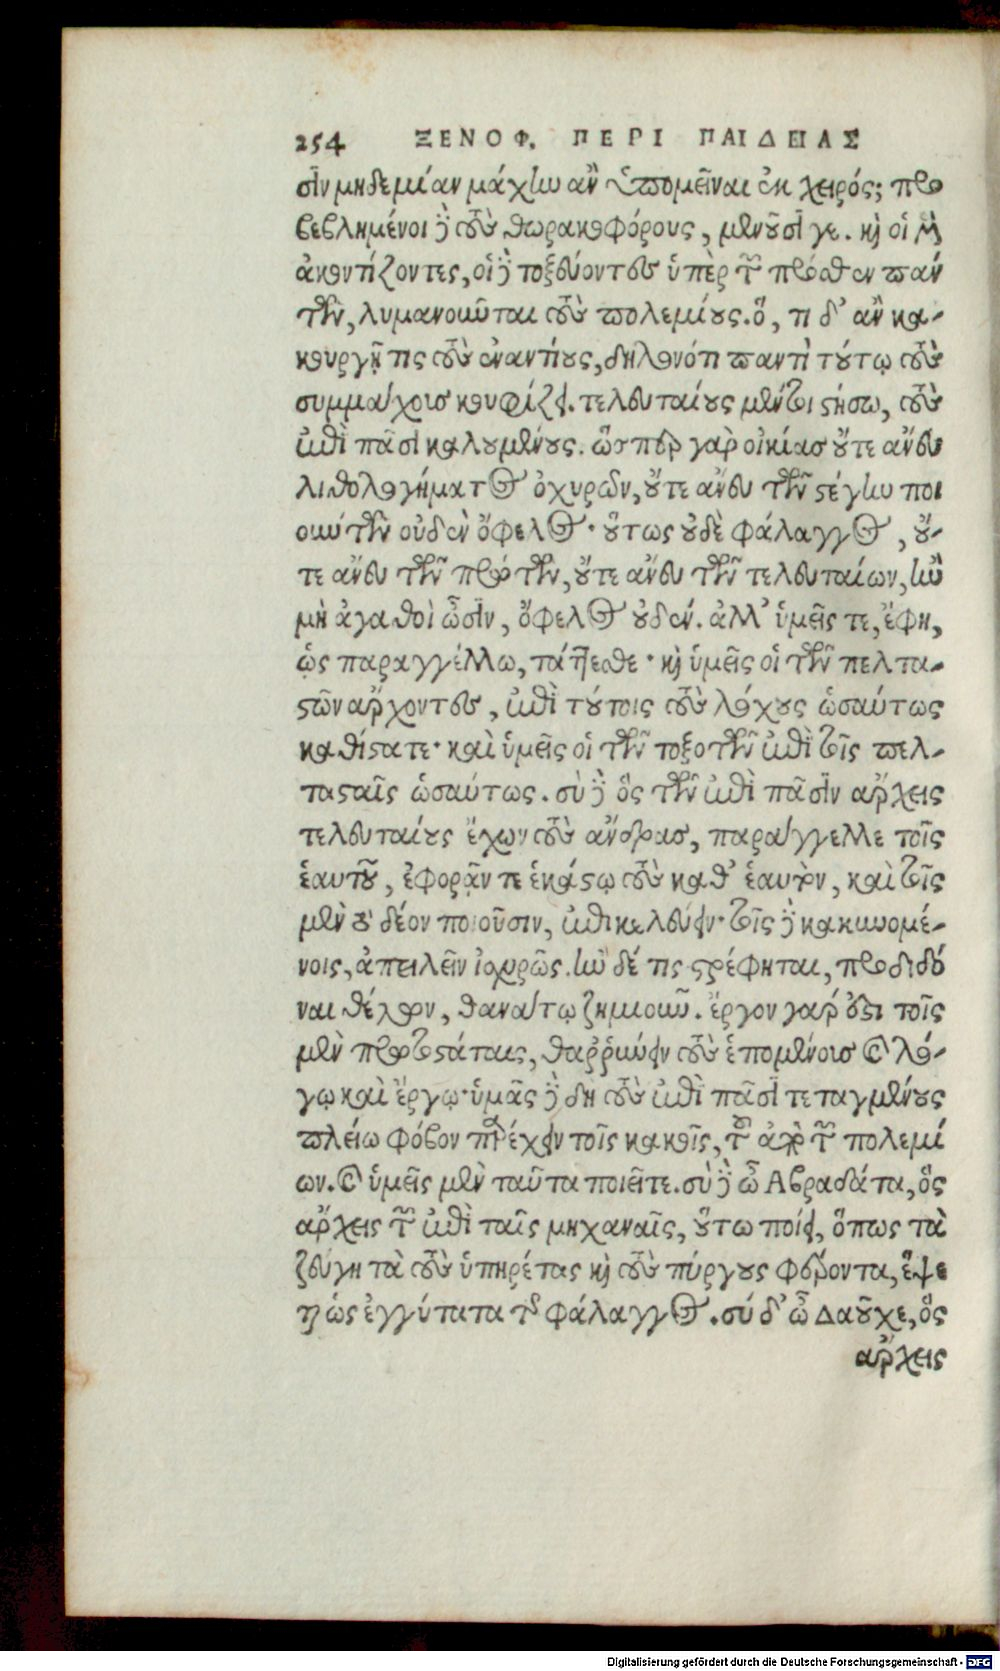 254 ΞΕΝΟΦ. ΠΕΡΙ ΠΑΙΔΕΙΑΣ
σὶν μηδεμίαν μάχην ἂν ὑπομεῖναι ἐκ χειρός; προ
βεβλημένοι δὲ τοὺς θωρακοφόρους, μενοῦσί γε. καὶ οἱ μὲν
ἀκοντίζοντες, οἱ δὲ τοξεύοντες ὑπὲρ τῶν πρόσθεν πάν
των, λυμανοῦνται τοὺς πολεμίους. ὅ, τι δ' ἂν κα-
κουργῇ τις τοὺς ἐναντίους, δηλονότι παντὶ τούτῳ τοὺς
συμμάχους κουφίζει. τελευταίους μέντοι στήσω, τοὺς
ἐπὶ πᾶσι καλουμένους. ὥσπερ γὰρ οἰκίας οὔτε ἄνευ
λιθολογήματος ὀχυροῦ, οὔτε ἄνευ τῶν στέγην ποι
ούντων οὐδὲν ὄφελος· οὕτως οὐδὲ φάλαγγος, οὔ-
τε ἄνευ τῶν πρώτων, οὔτε ἄνευ τῶν τελευταίων, ἢν
μὴ ἀγαθοὶ ὦσιν, ὄφελος οὐδέν. ἀλλ' ὑμεῖς τε, ἔφη,
ὡς παραγγέλλω, τάττεσθε· καὶ ὑμεῖς οἱ τῶν πελτα-
στῶν ἄρχοντες, ἐπὶ τούτοις τοὺς λόχους ὡσαύτως
καθίστατε· καὶ ὑμεῖς οἱ τῶν τοξοτῶν ἐπὶ τοῖς πελ-
τασταῖς ὡσαύτως. σὺ δὲ ὃς τῶν ἐπὶ πᾶσιν ἄρχεις
τελευταίους ἔχων τοὺς ἄνδρας, παράγγελλε τοῖς
ἑαυτοῦ, ἐφορᾷν τε ἑκάστῳ τοὺς καθ' ἑαυτὸν, καὶ τοῖς
μὲν τὸ δέον ποιοῦσιν, ἐπικελεύειν· τοῖς δὲ κακυνομέ-
νοις, ἀπειλεῖν ἰσχυρῶς. ἢν δέ τις στρέφηται, προδιδό
ναι θέλων, θανάτῳ ζημιοῦν. ἔργον γάρ ἐστι τοῖς
μὲν πρωτοστάταις, θαῤῥύνειν τοὺς ἑπομένους καὶ λό-
γῳ καὶ ἔργῳ· ὑμᾶς δὲ δὴ τοὺς ἐπὶ πᾶσι τεταγμένους
πλείω φόβον παρέχειν τοῖς κακοῖς, τοῦ ἀπὸ τῶν πολεμί
ων. καὶ ὑμεῖς μὲν ταῦτα ποιεῖτε. σὺ δὲ ὦ Αβραδάτα, ὃς
ἄρχεις τῶν ἐπὶ ταῖς μηχαναῖς, οὕτω ποίει, ὅπως τὰ
ζεύγη τὰ τοὺς ὑπηρέτας καὶ τοὺς πύργους φέροντα, ἕψε
ται ὡς ἐγγύτατα τῆς φάλαγγος. σύ δ' ὦ Δαοῦχε, ὃς
ἄρχεις
Digitalisierung gefördert durch die Deutsche Forschungsgemeinschaft - DFG